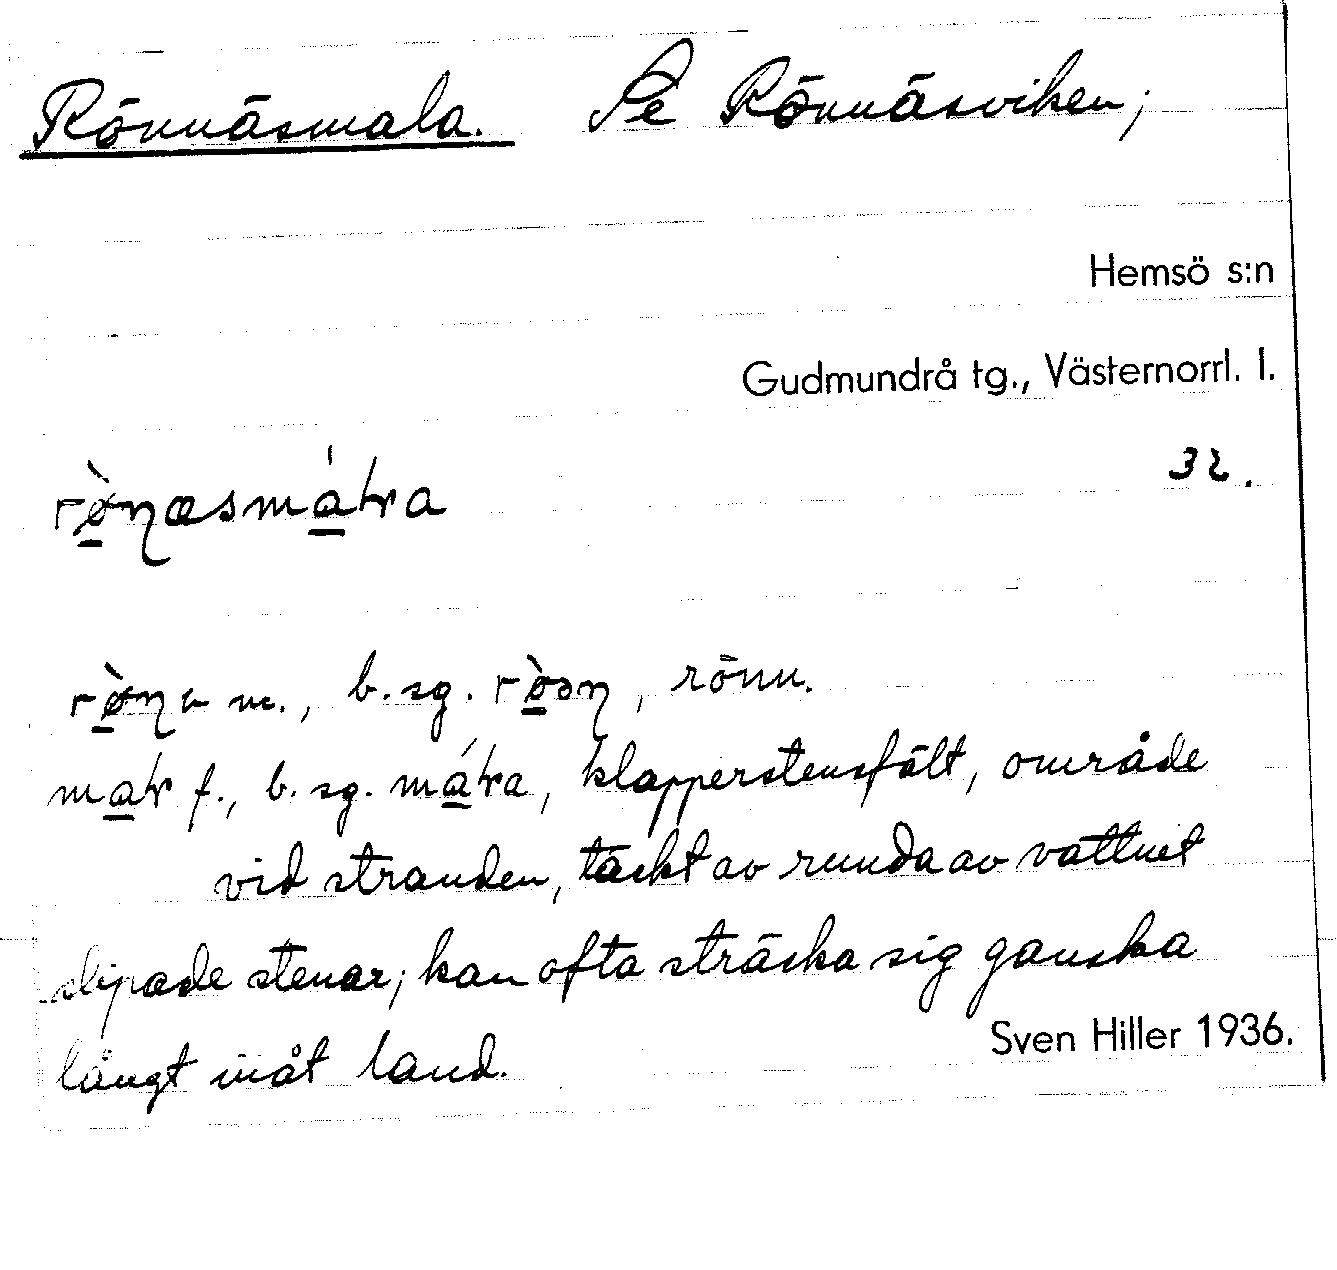 Rönnäsmala. Se Rönnäsviken;
Hemsö s:n
Gudmundrå tg., Västernorrl. l.
32.
m., b. sg. , rönn.
f., b. sg. , klapperstensfält, område
vid stranden, täckt av runda av vattnet
slipade stenar; kan ofta sträcka sig ganska
långt inåt land.
Sven Hiller 1936.